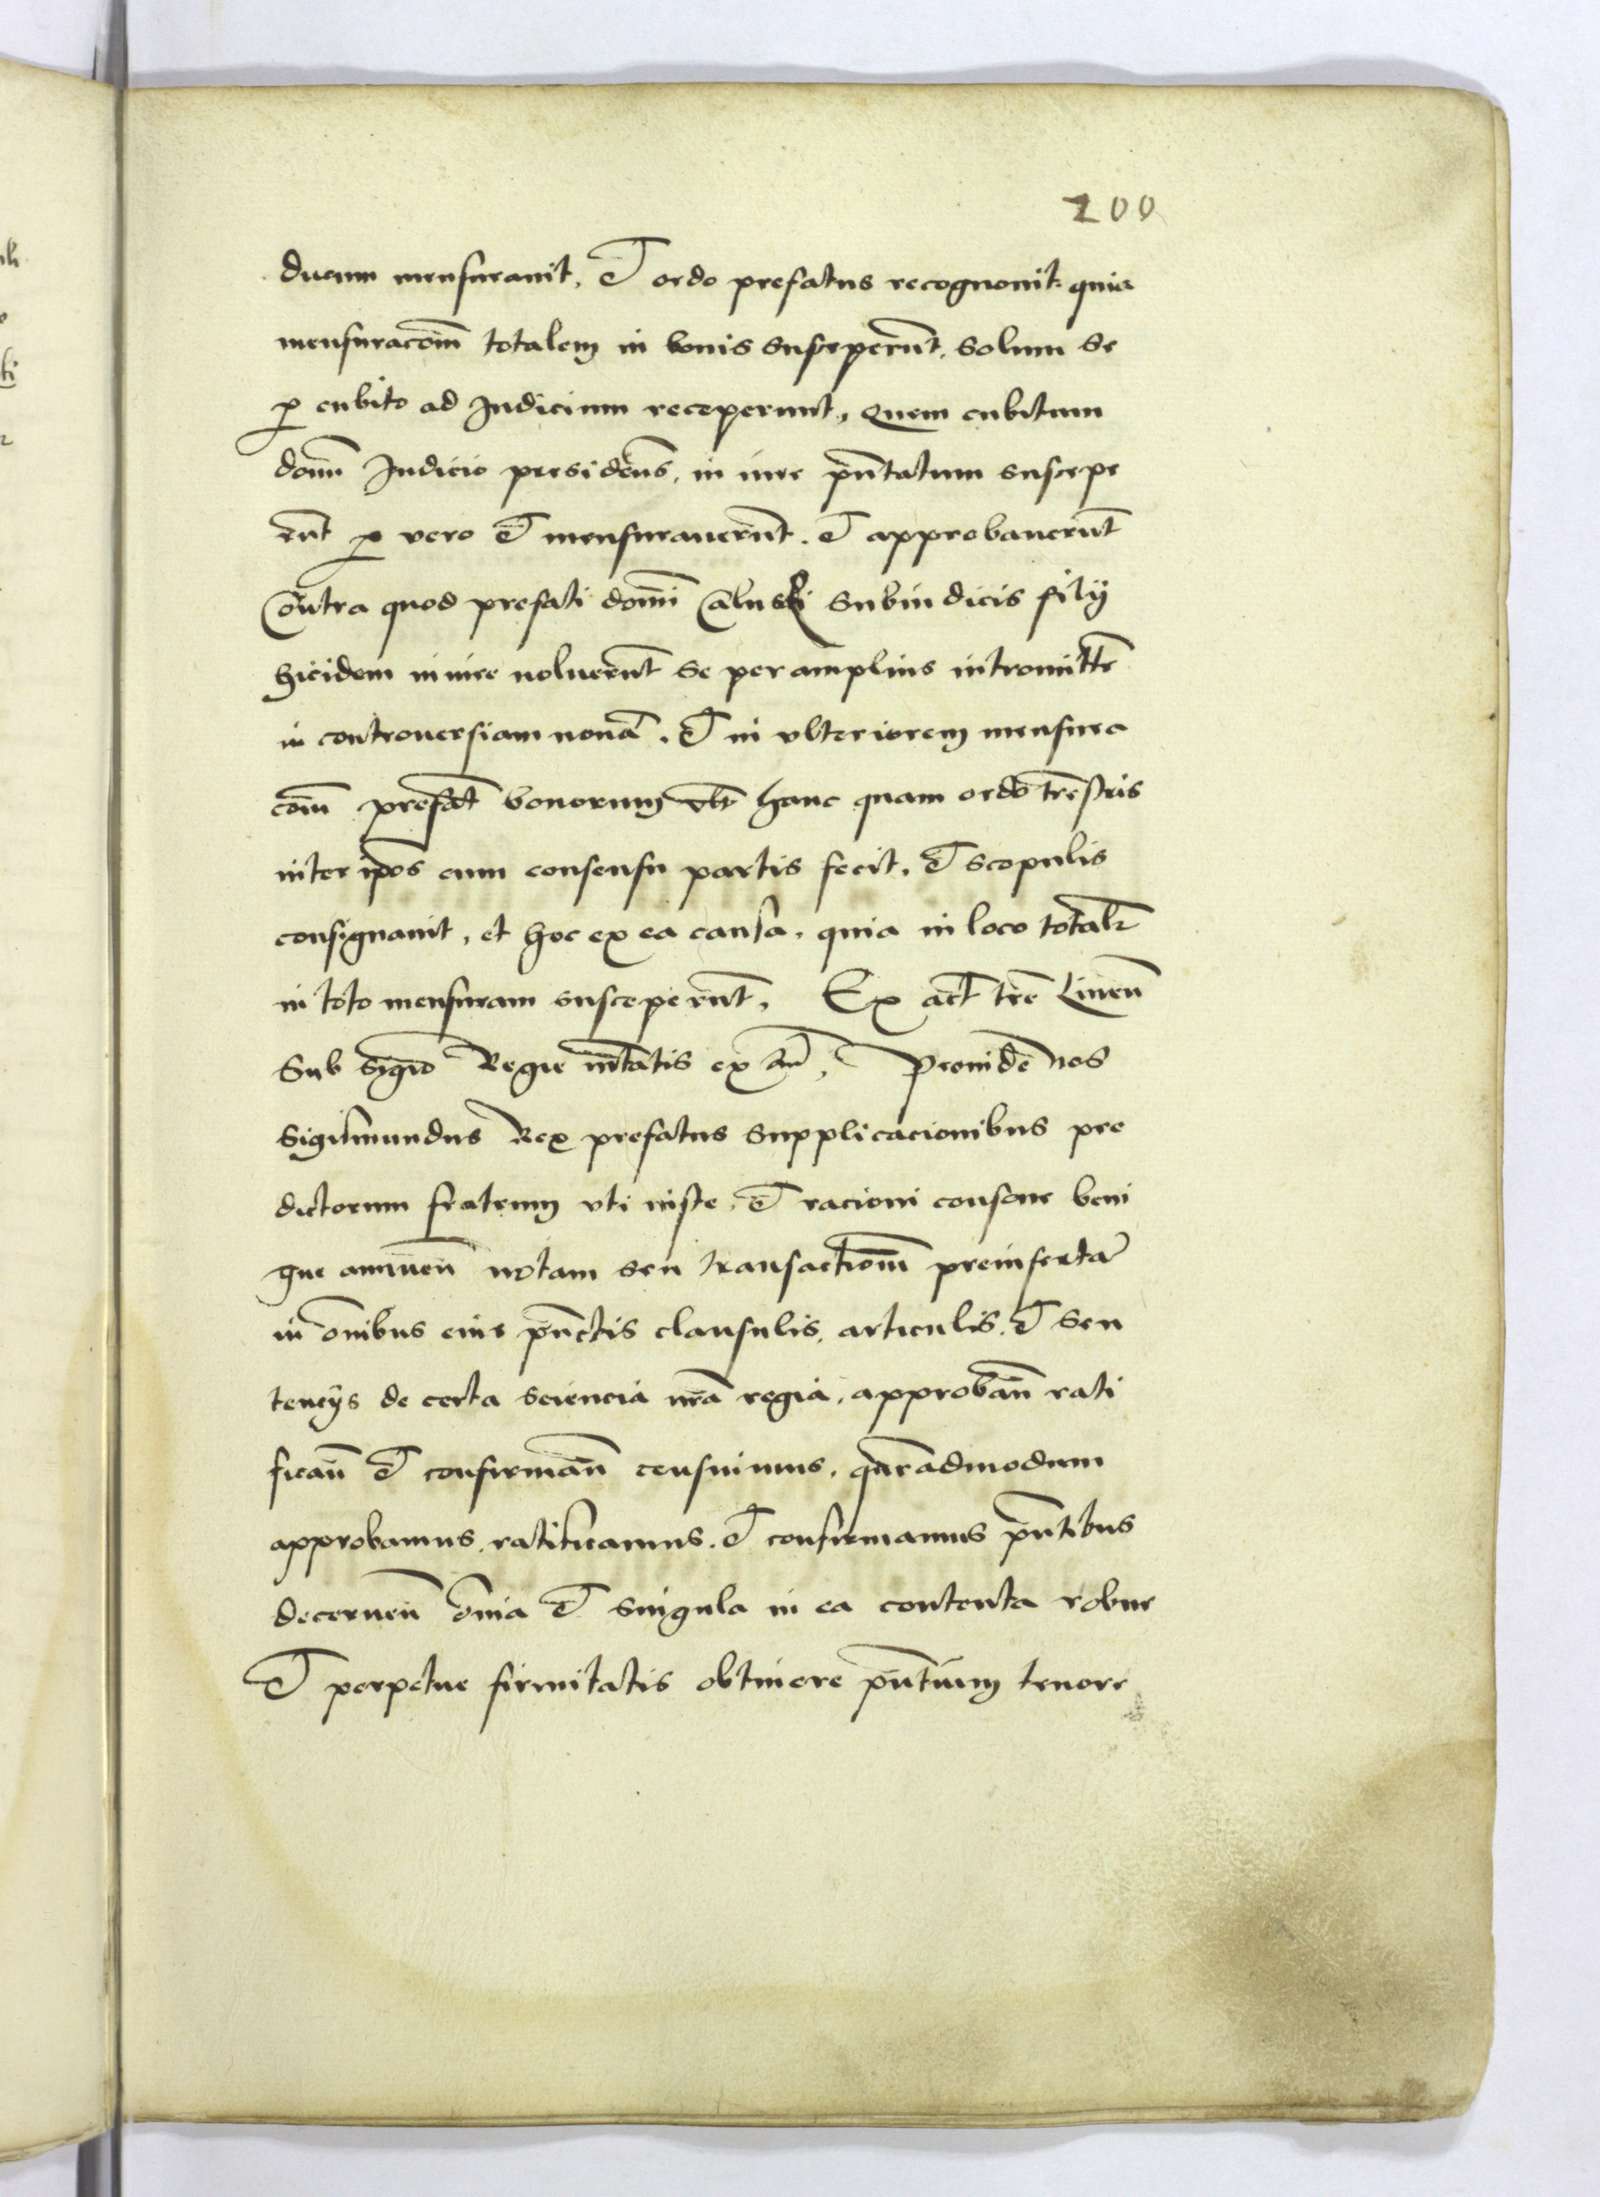 200
ducum mensurauit, Et ordo prefatus recognouit quia
mensuracom̄ totalem in bonis susceperūt, solum se
p cubito ad Iudicium receperunt, Quem cubitum
domī Iudicio presidēns, in iure p̄ntatum suscepe
rūt p vero Et mensurauerūt. Et approbauerūt
Contra quod prefati domī Caluski Subiudicis filÿ
hicidem in iure noluerūt se per amplius intromitt̄e
in controuersiam nouā. Et in vlteriorem mensura
com̄ prefat̄ bonorum vlt̄ hanc quam ordo tr̄estris
inter ip̄os cum consensu partis fecit, Et scopulis
consignauit, et hoc ex ea causa, quia in loco totalr̄
in toto mensuram susceperūt, Ex act̄ tr̄e
Sub sigō Regie mtatis ex au, Prouide nos
Sigismundus Rex prefatus supplicacionibus pre
dictorum fratrum vti iuste, Et racioni consone beni
gne annuen̄ notam seu transactiom̄ preinsertā
in om̄ibus eius punctis clausulis, articulis, Et sen
tencÿs de certa sciencia nr̄a regia, approban̄ rati
fican̄ Et confirman̄ censuimus, quēadmodum
approbamus, ratificamus, Et confirmamus p̄ntibus
decernen̄ om̄ia Et singula in ea contenta robur
Et perpetue firmitatis obtinere p̄ntium tenore